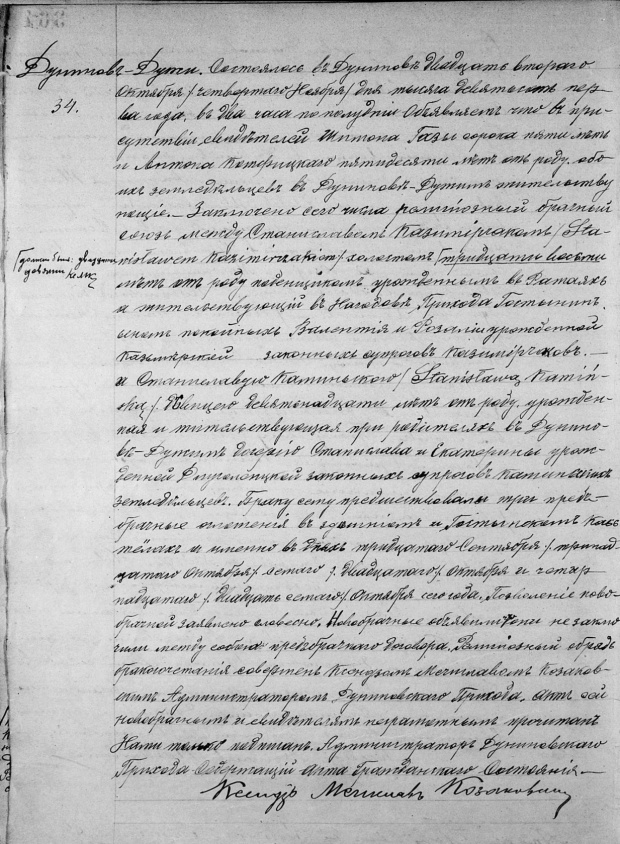 Дуниновъ-Дужи. Состоялось въ Дуниновѣ двадцать второго
34.
Октября /четвертаго Ноября/ дня тысяча девятьсотъ пер
ваго года, въ два часа по полудни. Объявляемъ что въ при
сутствіи свидѣтелей Шимона Газы сорока пяти лѣтъ
и Антона пятидесяти лѣтъ отъ роду, обо
ихъ земледѣльцевъ въ Дуниновѣ-Дужимъ жительству
ющіе. Заключено сего числа религіозный брачный
союзъ между Станиславомъ Казимерчакомъ /Sta
nisławem Kazimirzakiem/ холостымъ /тридцати восьми
лѣтъ отъ роду поденщикомъ, урожденнымъ въ Ратаяхъ
и жительствующій въ Нагодовѣ, Прихода Гостынинъ,
сынъ покойныхъ Валентія и Розаліи урожденной
законныхъ супруговъ Казимерчаковъ.
и Станиславую Каминьского / Stanisława Kamiń
ska / дѣвицею девятонадцати лѣтъ отъ роду, урожден
ная и жительствующая при родителяхъ въ Дунино
вѣ-Дужимъ дочерію Станислава и Екатерины урож
денной законныхъ супруговъ Каминьскихъ
земледѣльцевъ. Браку сему предшествовали три пред
брачные оглашенія въ здѣшнемъ и Гостынскомъ Кос
тёлахъ а именно въ дняхъ тридцатаго Сентября /тринад
цатаго Октября/ седьмаго / двадцатаго / Октября и четыр
надцатаго / двадцать седьмаго / Октября сего года. Позволеніе ново
брачной заявлено словесно. Новобрачные объявили что они не заклю
чили между собою предбрачнаго договора. Религіозный обрядъ
бракосочетанія совершенъ Ксендзомъ Мечиславомъ Козаков
скимъ Администраторомъ Дуниновскаго Прихода. Актъ сей
новобрачнымъ и свидѣтелямъ неграмотнымъ прочитанъ
Нами только подписанъ. Администраторъ Дуниновскаго
Прихода Содержащій акта Гражданскаго Состоянія
Ксендзъ Мечиславъ Козаковскій